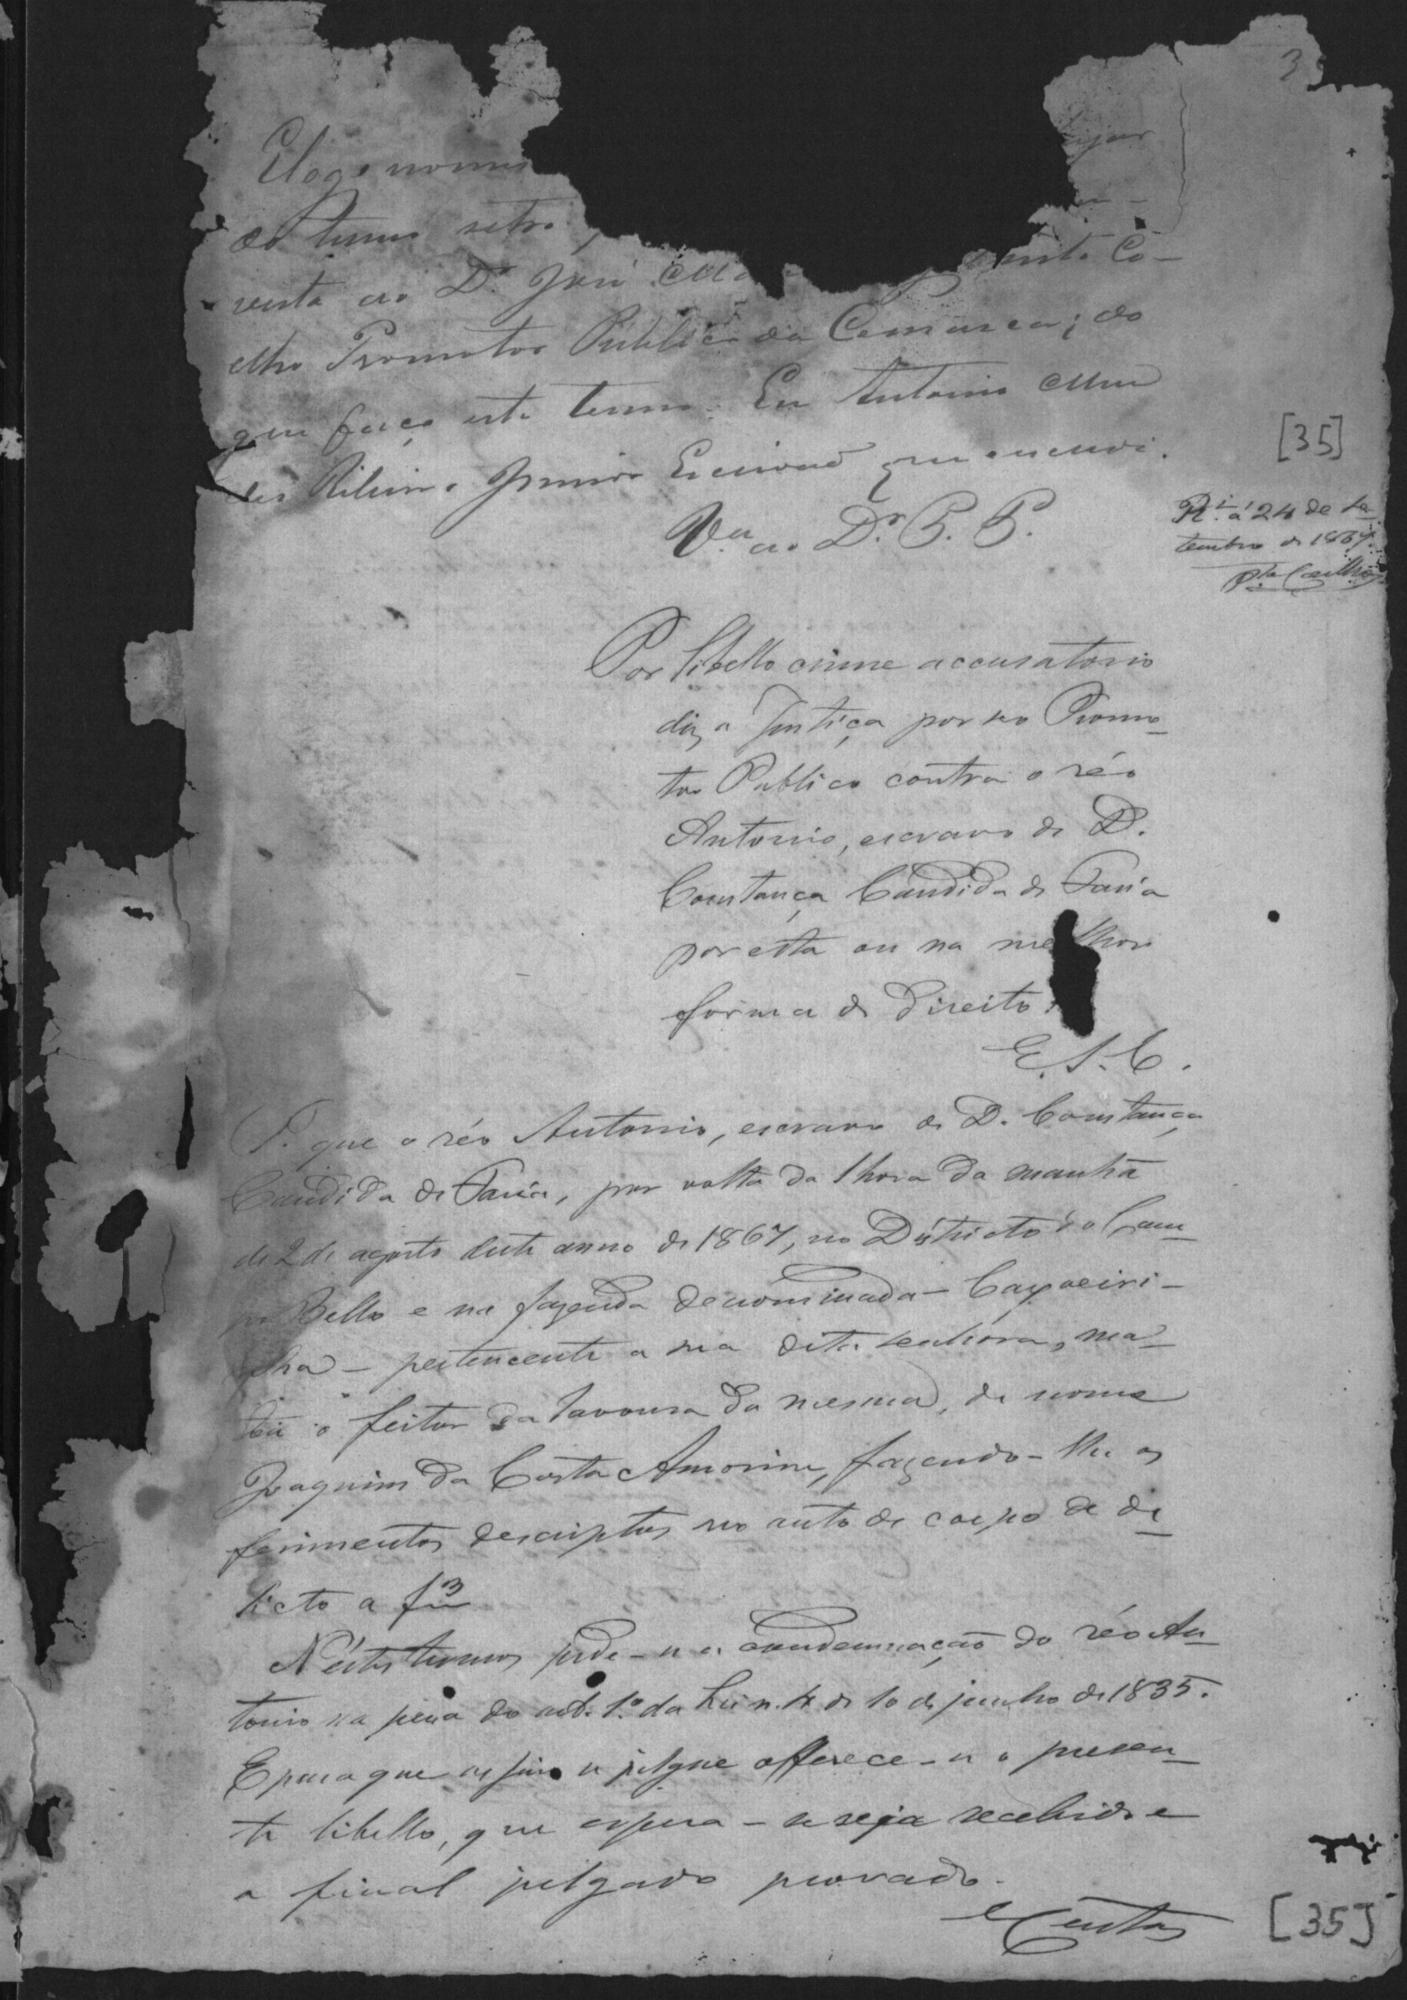 3
E logo no mes
do termo retro,
vista ao Dr. José Co-
elho Promotor Publico da Comarca; do
que faço este termo. Eu Antonio Men
des Ribeiro Junior Escrivaõ que escrevi.
V.ta ao Dr. P. P.
[35]
R.i á 24 de Se
tembro de 1867.
Pte. Coelho
Por libello crime accusatorio
diz a Justiça por seo Promo-
tor Publico contra o réo
Antonio, escravo de D.
Constança Candida de Faria
por esta ou na melhor
forma de direito.
E. S. C.
P. que o réo Antonio, escravo de D. Constança
Candida de Faria, por volta da 1 hora da manhã
de 2 de agosto deste anno de 1867, no Districto do Cam-
po Bello e na fazenda denominada - Capoeiri-
nha - pertencente a sua dita senhora, ma-
tou o feitor da lavoura da mesma, de nome
Joaquim da Costa Amorim, fazendo-lhe os
ferimentos descriptos no auto de corpo de de-
licto a f 3
N'estes termos pede-se a condemnação do réo An-
tonio na pena do art. 1.º da Lei n. 4 de 10 de junho de 1835.
E para que assim se julgue offerece-se o presen-
te libello, que espera-se seja recebido e
a final julgado provado.
e Custas
[35]